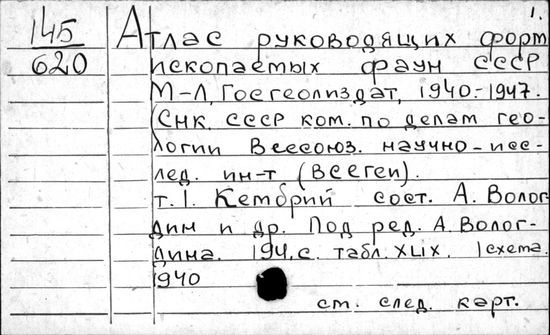 1.
145
620
Атлас руководящих форм
ископаемых фаун СССР
М-Л, Госгеолиздат, 1940-1947.
(СНК. СССР ком. по делам гео-
логии Всесоюз. научно-исс-
лед. ин-т (ВСЕГЕИ).
т. 1. Кембрий сост. А. Волог-
дин и др. Под ред. А. Волог-
дина. 194, с. табл. XLIX, 1 схема.
1940
см. след. карт.